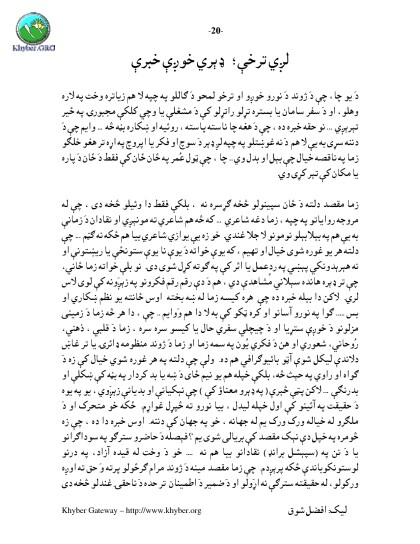 Khyber.ORG
-20-
لږې ترخې؛ ډېرې خوږې خبرې
د يو چا، چې د ژوند د نورو خوږو او ترخو لمحو د ګاللو په چپه لا هم زياتره وخت په لاره
وهلو، او د سفر سامان يا بستره تړلو راتړلو کې د مشغلې يا وچې کلکې مجبورۍ په خير
تېرېږي ... نو حقه خبره ده، چې د هغه چا ناسته پاسته، روئيه او ښکاره ښه څه .. وايم چې د
دننه سړی به يې لا هم د نه غوښتلو په چپه لږ ډېر د سوچ او فکر يا اپروچ په اړه تر هغو خلګو
زما په ناقصه خيال چې بېل او بدل وي .. چا، چې ټول عُمر په ځان ځان کې فقط د ځان د پاره
يا مکان کې تېر کړی وي.
زما مقصد دلته د ځان سپينولو څخه ګرسره نه، بلکې فقط دا وئيلو څخه دی، چې له
مروجه رواياتو په چپه، زما دغه شاعري .. که څه هم شاعري ته مونږې او نقادان د زمانې
به يې هم په بېلابېلو نومونو لا جلا غندي. خو زه يې يوازې شاعري بيا هم ځکه نه ګڼم ... چې
دلته هر يو غوره شوی خيال او تفهيم، که يې خواته د يوې نا يوې ستونځې يا رېښتونې او
نه هېرېدونکې پېښې په ردعمل يا اثر کې په ګوته کړل شوی دی. نو بلې خواته زما ځانې،
چې تر ډېره هانده سېلاني مشاهدې دي، هم د دې رقم رقم فکرونو په زېږونه کې لوی لاس
لري. لاکن دا بېله خبره ده چې هرہ کيسه زما له ښه بخته اوس ځانته يو نظم ښکاري او
بس .... ګوا په نورو آسانو او کره ټکو کې به لا دا هم ووايم .. چې، دا هر څه زما د زمينی
مزلونو د خوږې سترېا او د چيچلي سفري حال يا کيسو سره سره، زما د قلبي، ذهني،
رُوحاني، شعوري او هن د فکري بيون په سمه زما او زما د ژوند منظومه ډائرۍ يا تر غاښ
دلاندې ليکل شوې آټو بائيوګرافي هم ده. ولې چې دلته په هر غوره شوي خيال کې زه د
ګواه او راوي په حيث څه، بلکې خپله هم يو نيم ځای د ښه يا بد کردار په بڼه کې ښکلی او
بدرنګی ... لاکن پټې خبرې (په ډېرو معناؤ کې) چې نېکيانې او بديانې زېږوي، يو په يوه
د حقيقت په آئينو کې اول خپله لېدل، بيا نورو ته خپرل غواړم. ځکه خو متحرک او د
ملګرو له خياله ورک ورک يم له جهانه، خو په جهان کې دننه. اوس خبره دا ده، چې زه
څومره په خپل دې نېک مقصد کې بريالی شوی يم؟ فېصله د حاضرو سترګو په سوداګرانو
يا د تن په (سپېشل برانډ) نقادانو بيا هم نه .... خو د وخت له قيده آزاد، په درنو
لوستونکيو باندې ځکه پرېږدم چې زما مقصد مينه د ژوند مرام ګرځولو پرته د حق ته اوږه
ورکولو، له حقيقته سترګې نه اړولو او د ضمير د اطمينان تر حده د ناحقۍ غندلو څخه دی
Khyber Gateway – http://www.khyber.org
ليک: افضل شوق